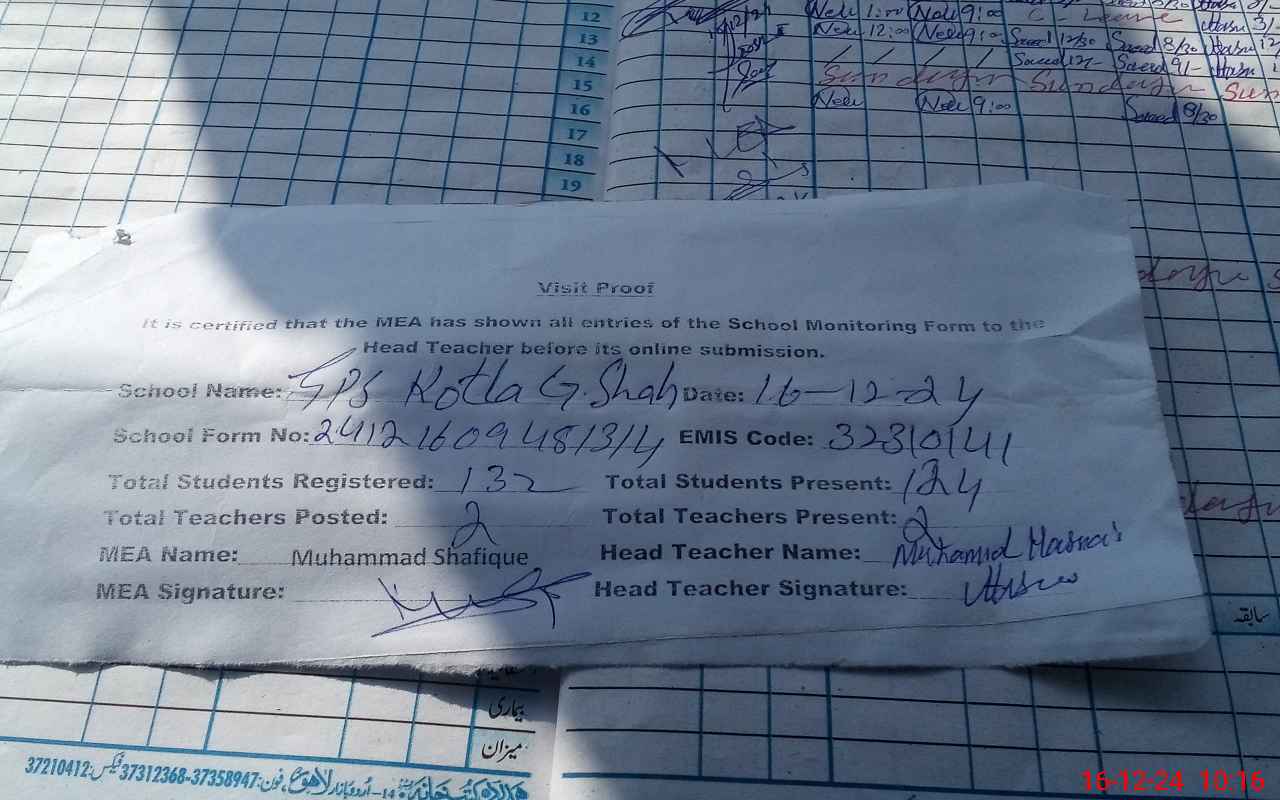 12
13
14
15
16
17
18
19
1:00 9:00 C-Leave
12:00 9:00 Saeed 12/30 Saeed 8/30
Saeed 12/- Saeed 9/-
Sunday Sunday Sun
9:00 Saeed 8/30
Visit Proof
It is certified that the MEA has shown all entries of the School Monitoring Form to the
Head Teacher before its online submission.
School Name: GPS Kotla G. Shah Date: 16-12-24
School Form No: 24121609481314 EMIS Code: 32310141
Total Students Registered: 132 Total Students Present: 124
Total Teachers Posted: 2 Total Teachers Present: 2
MEA Name: Muhammad Shafique Head Teacher Name: Muhamid Hasnai's
MEA Signature: Head Teacher Signature:
سابقہ
بیماری
میزان
14-اُردو بازار لاہور، فون:37358947-37312368 فیکس:37210412
16-12-24 10:16